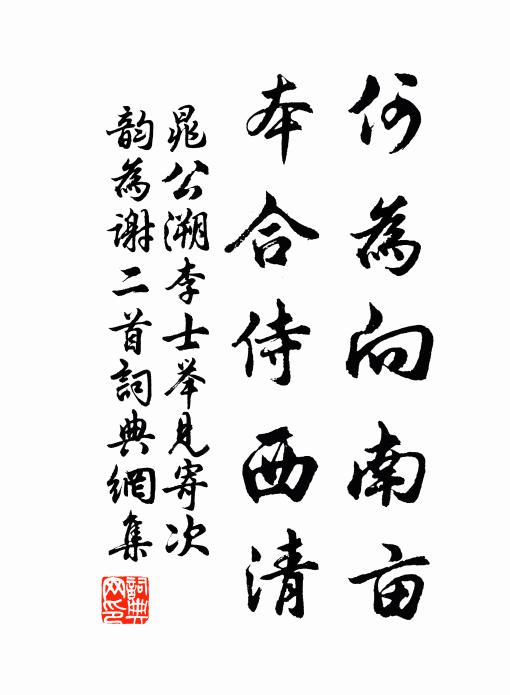 何為向南亩
本合侍西清
晁公溯李士举見寄次
韵為谢二首詞典網集
詞典網印